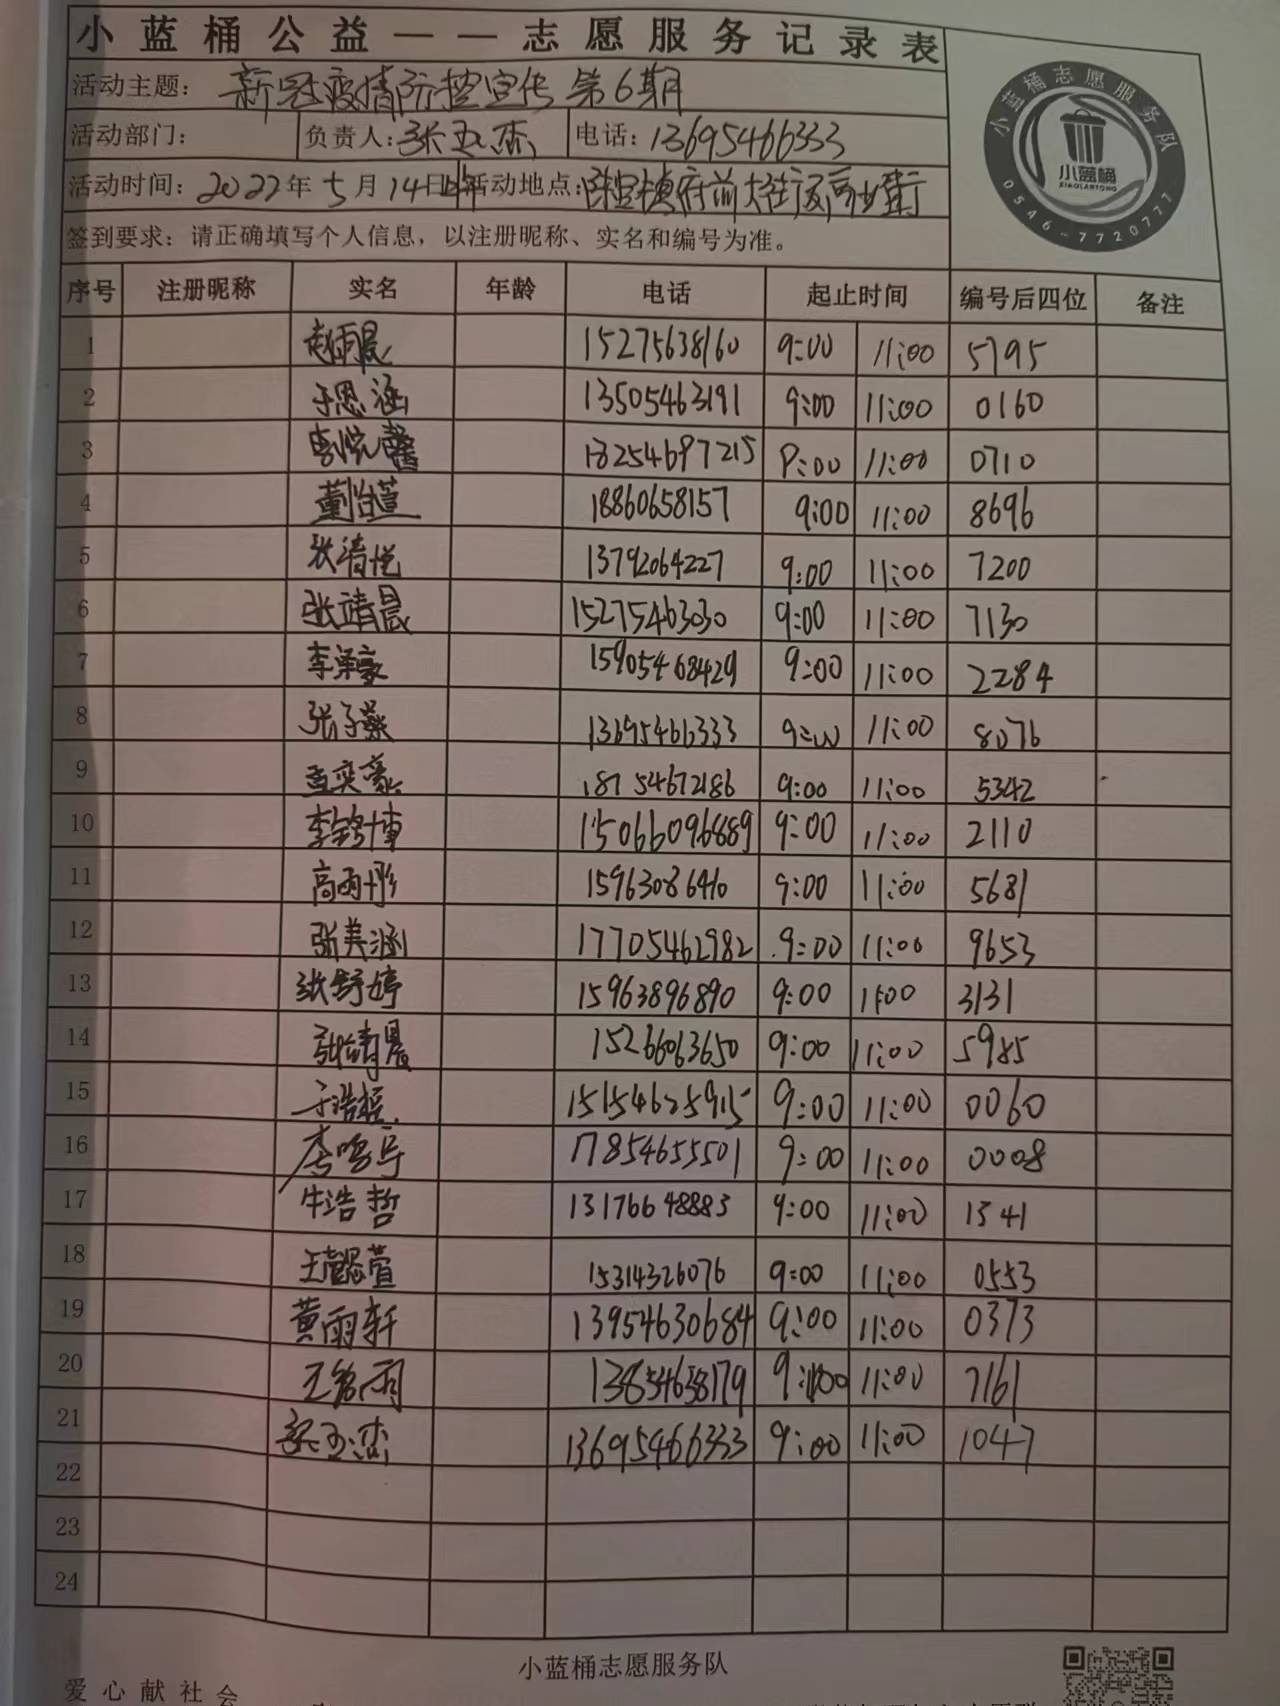 小蓝桶公益——志愿服务记录表
活动主题：新冠疫情防控宣传 第6期
活动部门： 负责人：张玉杰 电话：13695466333
活动时间：2022年5月14日上午 活动地点：镇府前大街 商业街
签到要求：请正确填写个人信息，以注册昵称、实名和编号为准。
小蓝桶志愿服务队
小蓝桶
XIAOLANTONG
0546-7720777
序号 注册昵称 实名 年龄 电话 起止时间 编号后四位 备注
1 赵雨晨 15275638160 9:00 11:00 5795
2 于恩涵 13505463191 9:00 11:00 0160
3 李悦馨 18254697215 9:00 11:00 0710
4 董怡萱 18860658157 9:00 11:00 8696
5 张清悦 13792064227 9:00 11:00 7200
6 张靖晨 15275463030 9:00 11:00 7130
7 李泽豪 15905468429 9:00 11:00 2284
8 张子燊 13695466333 9:00 11:00 8076
9 孟奕豪 18754672186 9:00 11:00 5342
10 李锦博 15066096889 9:00 11:00 2110
11 高雨彤 15963086410 9:00 11:00 5681
12 张美涵 17705462982 9:00 11:00 9653
13 张舒婷 15963896890 9:00 11:00 3131
14 张靖晨 15266063650 9:00 11:00 5985
15 于浩桓 15154625915 9:00 11:00 0060
16 李鸣宇 17854655501 9:00 11:00 0008
17 牛浩哲 13176648883 9:00 11:00 1341
18 王懿萱 15314326076 9:00 11:00 0553
19 黄雨轩 13954630684 9:00 11:00 0373
20 王铭雨 13854638179 9:00 11:00 7161
21 张玉杰 13695466333 9:00 11:00 1047
22
23
24
小蓝桶志愿服务队
爱心献社会